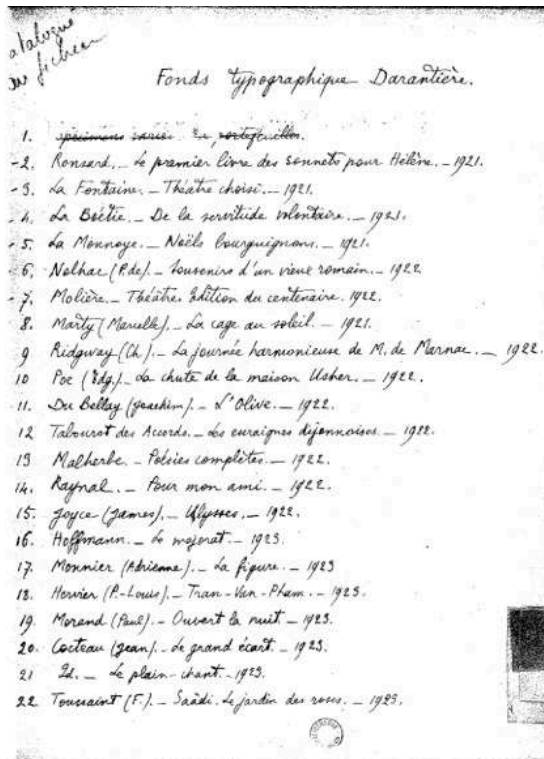 Catalogué
au fichier
Fonds typographique Darantière.
1. spécimens variés. En portefeuilles.
-2. Ronsard. _ Le premier livre des Sonnets pour Hélène. - 1921.
-3. La Fontaine. _ Théâtre choisi. _ 1921.
-4. La Boëtie. _ De la servitude volontaire. _ 1921.
-5. La Monnoye. _ Noëls bourguignons. _ 1921.
-6. Nolhac (P. de) _ Souvenirs d'un vieux romain. _ 1922
-7. Molière. _ Théâtre. Edition du centenaire. 1922.
8. Marty (Marcelle). _ La cage au soleil. _ 1921.
9 Ridgway (Ch). _ La journée harmonieuse de M. de Marnac. _ 1922.
10 Poe (Edg.) _ La chute de la maison Usher. _ 1922.
11. Du Bellay (Joachim) _ L'Olive. _ 1922.
12 Tabourot des Accords. _ Les escraignes dijonnoises. _ 1922.
13 Malherbe _ Poésies complètes. _ 1922.
14. Raynal. _ Pour mon ami. _ 1922.
15. Joyce (James). _ Ulysses. _ 1922.
16. Hoffmann. _ Le majorat. _ 1923.
17. Monnier (Adrienne). _ La figure. _ 1923
18. Hervier (P.-Louis). _ Tran-Van-Pham. _ 1923.
19. Morand (Paul) _ Ouvert la nuit _ 1923.
20. Cocteau (Jean). _ Le grand écart. _ 1923.
21 Id. _ Le plain-chant. _ 1923.
22 Toussaint (F.). _ Saâdi. Le jardin des roses. _ 1923.